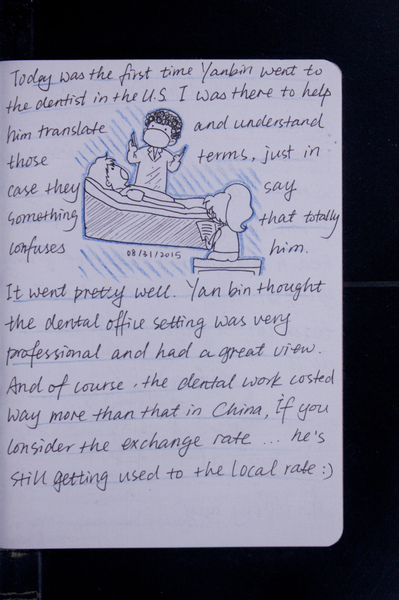 Today was the first time Yanbin went to
the dentist in the U.S. I was there to help
him translate and understand
those terms, just in
case they say
something that totally
confuses him.
08/31/2015
It went pretty well. Yanbin thought
the dental office setting was very
professional and had a great view.
And of course, the dental work costed
way more than that in China, if you
consider the exchange rate ... he's
still getting used to the local rate :)